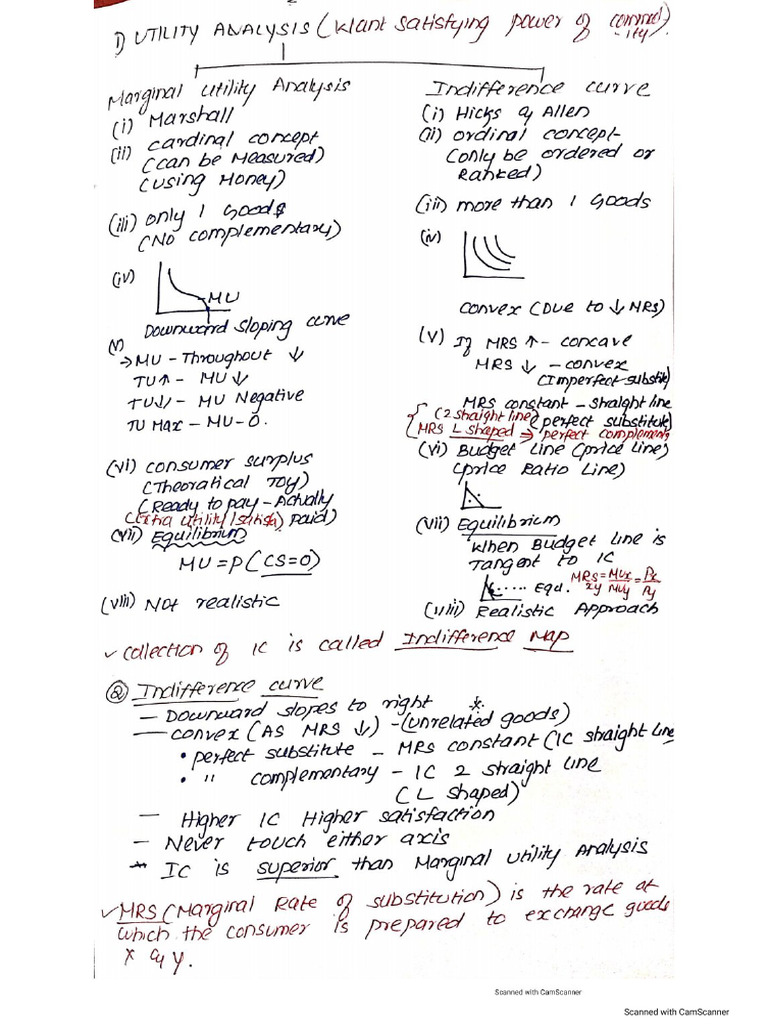 1) UTILITY ANALYSIS (Want satisfying power of commod
-ity)
Marginal Utility Analysis
(i) Marshall
(ii) cardinal concept
(can be Measured)
(using Money)
(iii) only 1 Goods
(No complementary)
(iv)
MU
Downward sloping curve
(v)
→ MU - Throughout ↓
TU↑ - MU↓
TU↓ - MU Negative
TU Max - MU-0.
(vi) consumer surplus
(Theoratical Toy)
(Ready to pay - Actually
(Extra utility/satisfn) paid)
(vii) Equilibrium
MU = P (CS=0)
(viii) Not realistic
Indifference curve
(i) Hicks & Allen
(ii) ordinal concept
(only be ordered or
Ranked)
(iii) more than 1 Goods
(iv)
convex (Due to ↓ MRS)
(v) If MRS ↑ - concave
MRS ↓ - convex
(Imperfect substitute)
MRS constant - Straight line
(2 straight line) (perfect substitute)
(MRS L shaped ⇒ perfect complements
(vi) Budget Line (price Line)
(price Ratio Line)
(vii) Equilibrium
When Budget line is
Tangent to IC
Eqd. MRSxy = MUx/MUy = Px/Py
(viii) Realistic Approach
✓ collection of IC is called Indifference Map
② Indifference curve
- Downward slopes to right *.
- convex (AS MRS ↓) - (unrelated goods)
• perfect substitute - MRS constant (IC straight line
• " complementary - IC 2 straight line
(L shaped)
- Higher IC Higher satisfaction
- Never touch either axis
* IC is superior than Marginal utility Analysis
✓ MRS (Marginal Rate of substitution) is the rate at
which the consumer is prepared to exchange goods
x & y.
Scanned with CamScanner
Scanned with CamScanner